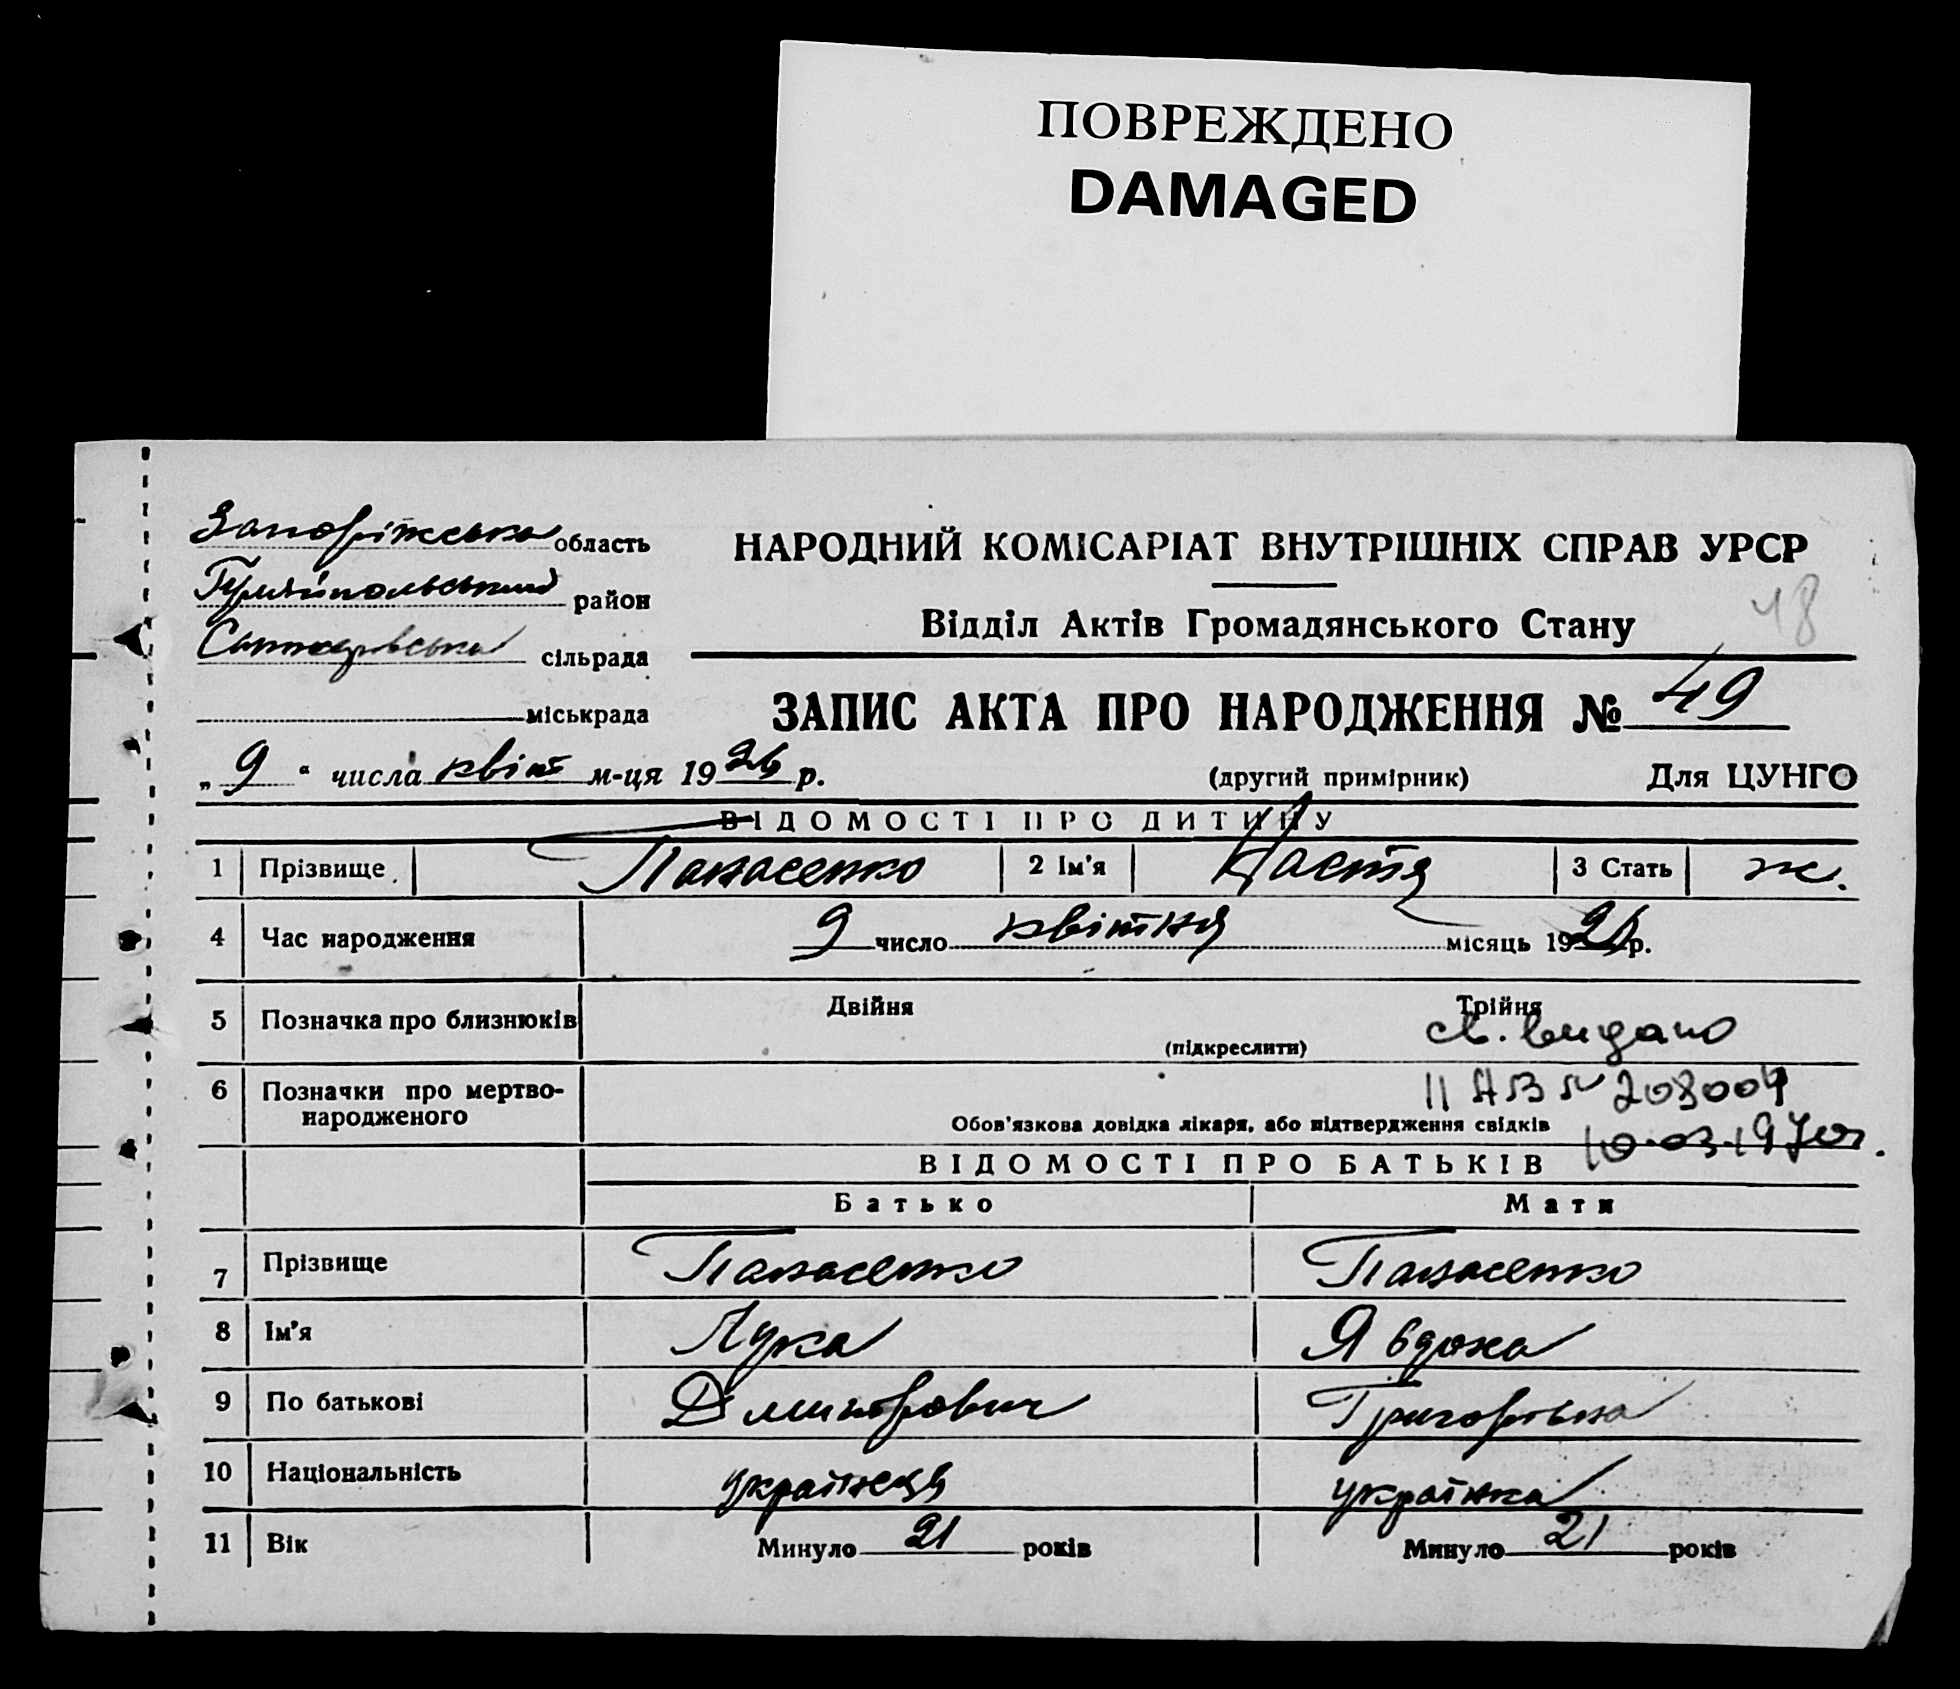 ПОВРЕЖДЕНО
DAMAGED
Запоріжська область
Гуляйпольський район
сільрада
міськрада
НАРОДНИЙ КОМІСАРІАТ ВНУТРІШНІХ СПРАВ УРСР
48
Відділ Актів Громадянського Стану
ЗАПИС АКТА ПРО НАРОДЖЕННЯ № 49
„ 9 “ числа квітн м-ця 1926 р.
(другий примірник) Для ЦУНГО
ВІДОМОСТІ ПРО ДИТИНУ
1 Прізвище Панасенко 2 Ім'я Настя 3 Стать ж.
4 Час народження 9 число квітня місяць 1926 р.
5 Позначка про близнюків Двійня Трійня
(підкреслити)
св. видано
II АВ № 203004
10.03.1970г.
6 Позначки про мертво-
народженого
Обов'язкова довідка лікаря, або підтвердження свідків
ВІДОМОСТІ ПРО БАТЬКІВ
Батько Мати
7 Прізвище Панасенко Панасенко
8 Ім'я Лука Явдоха
9 По батькові Дмитрович Григорівна
10 Національність українець українка
11 Вік Минуло 21 років Минуло 21 років